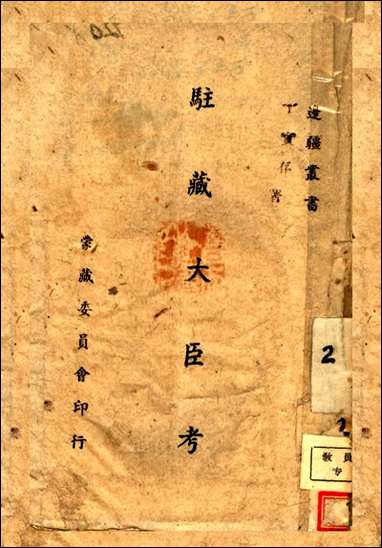 邊疆叢書
丁實存著
駐藏大臣考
蒙藏委員會印行
2
教員
专